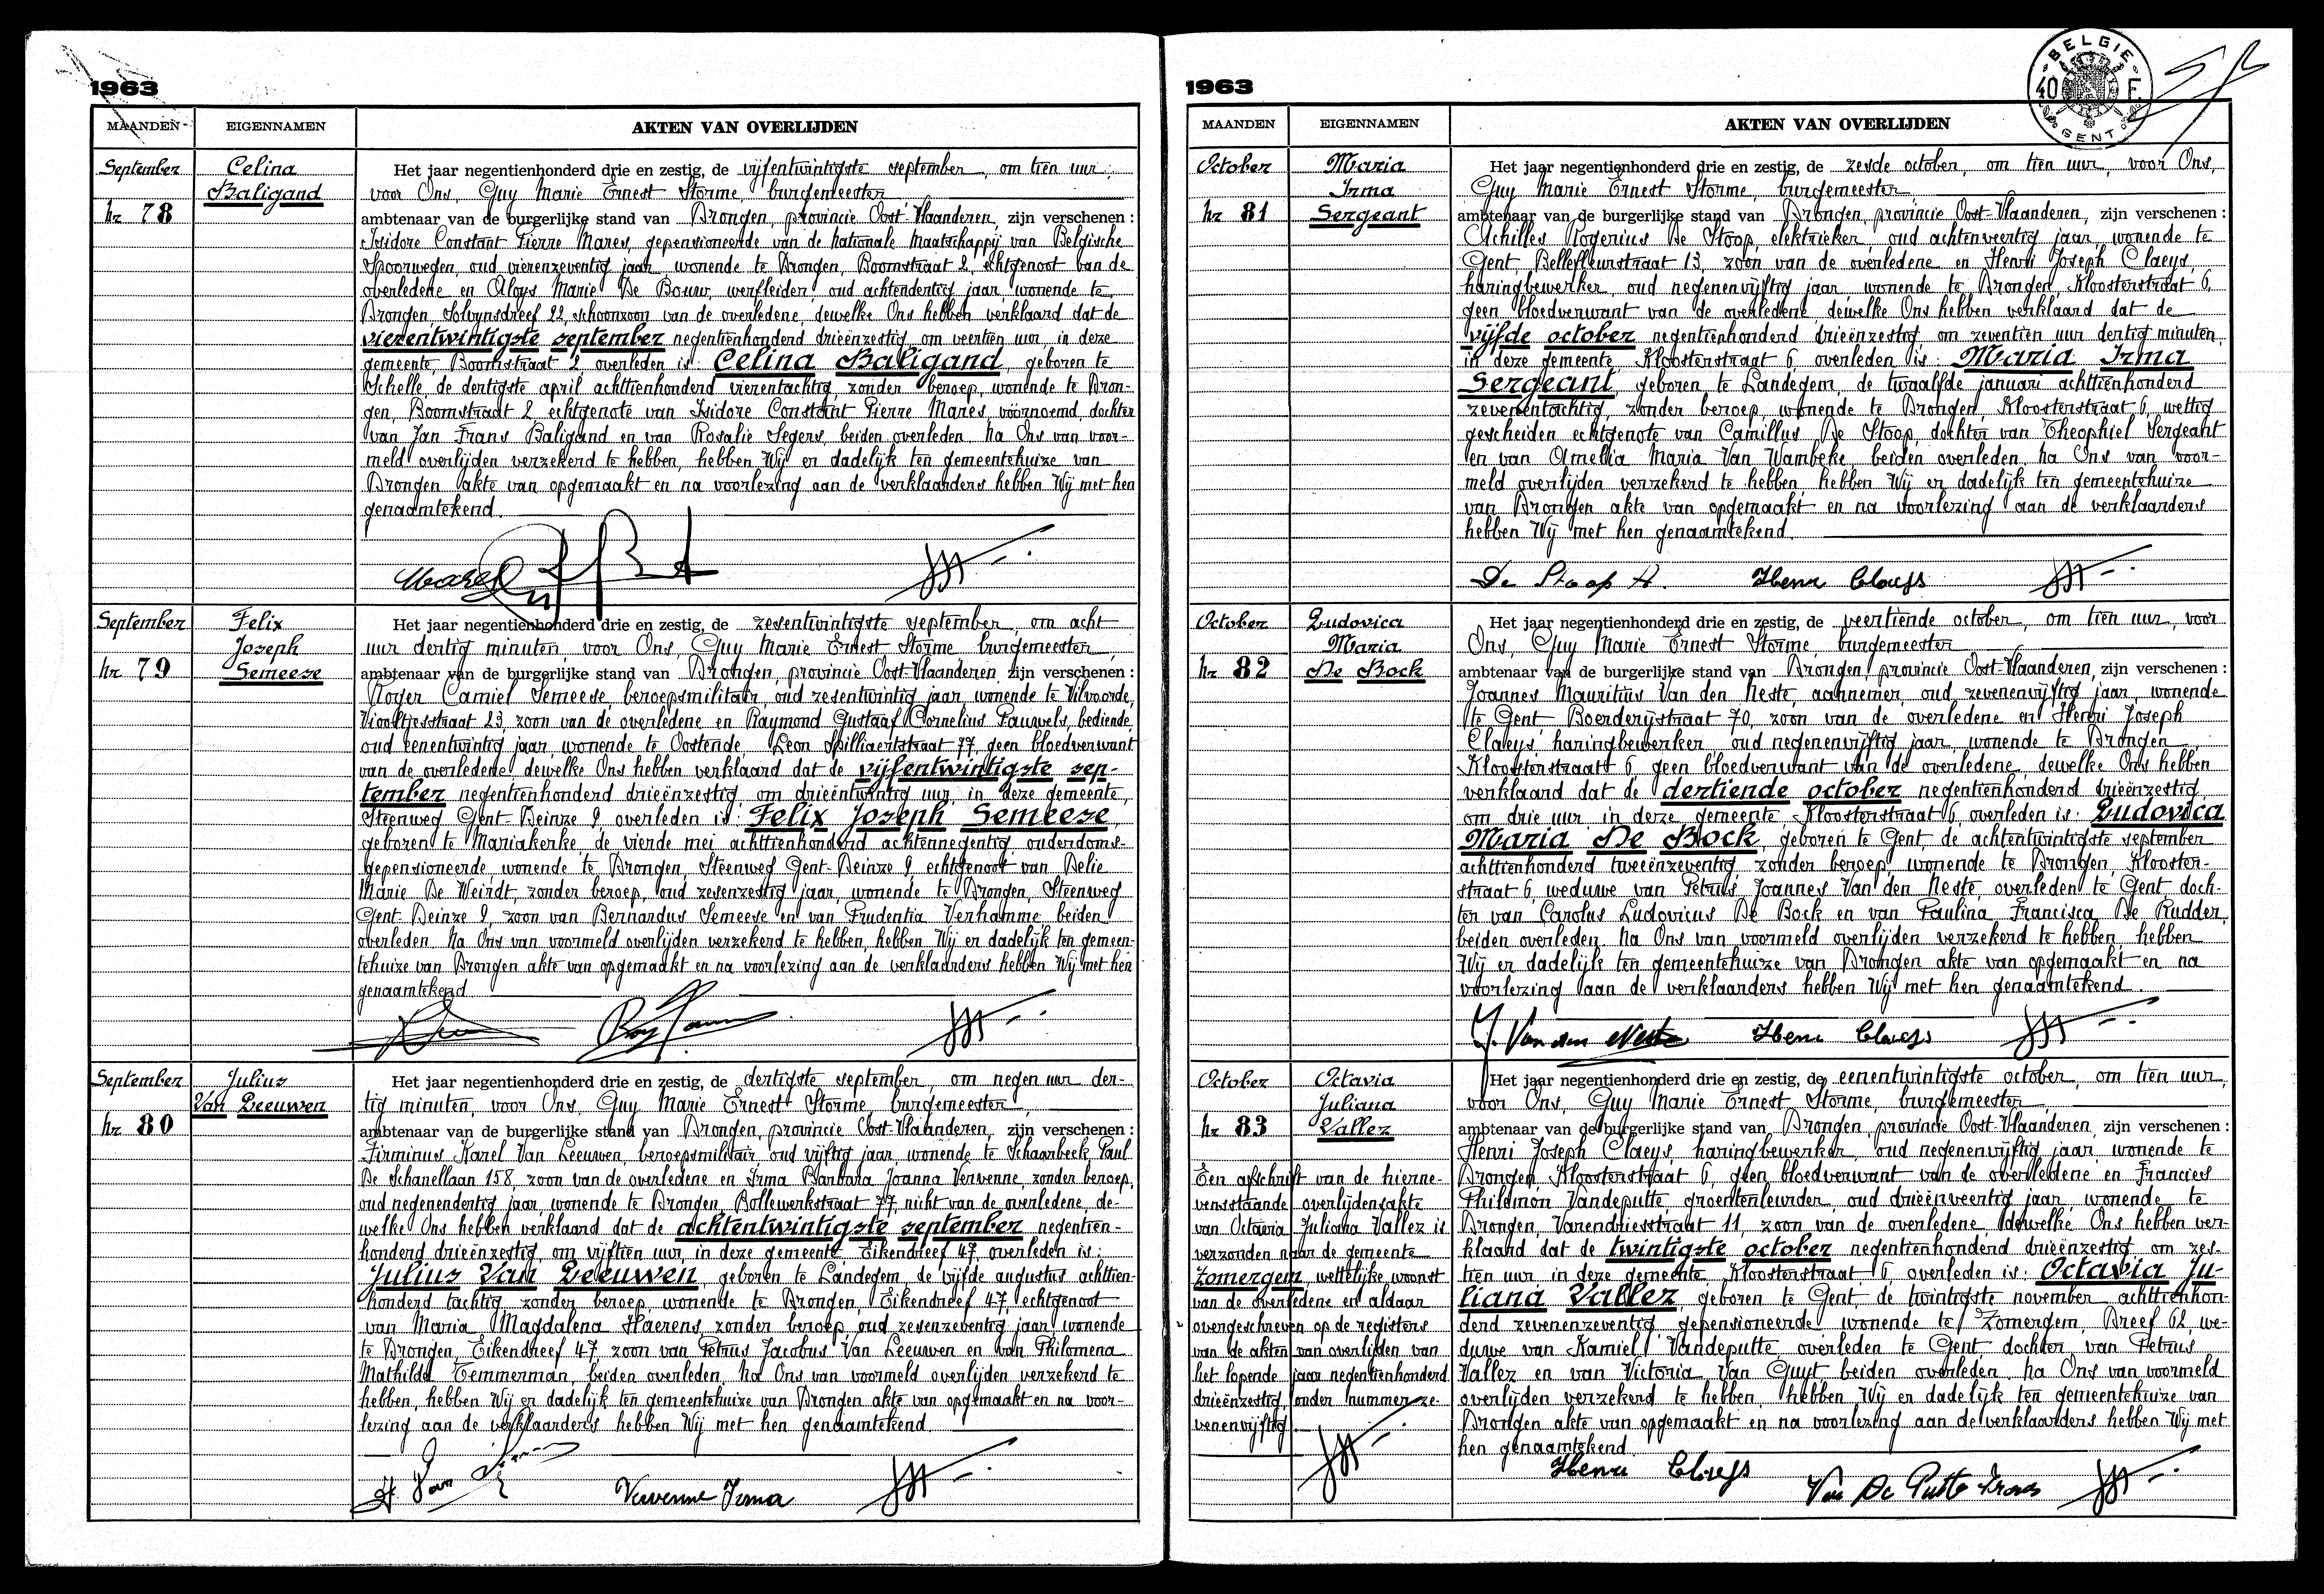 1963
MAANDEN EIGENNAMEN AKTEN VAN OVERLIJDEN
September
Nr 78
Celina
Baligand
Het jaar negentienhonderd drie en zestig, de vijfentwintigste september, om tien uur,
voor Ons, Guy Marie Ernest Storme, burgemeester
ambtenaar van de burgerlijke stand van Drongen, provincie Oost-Vlaanderen, zijn verschenen:
Isidore Constant Pierre Mares, gepensioneerde van de Nationale Maatschappij van Belgische
Spoorwegen, oud vierenzeventig jaar, wonende te Drongen, Boomstraat 2, echtgenoot van de
overledene en Aloys Marie De Bouw, werfleider, oud achtendertig jaar, wonende te
Drongen, Solvynsdreef 22, schoonzoon van de overledene, dewelke Ons hebben verklaard dat de
vierentwintigste september negentienhonderd drieënzestig, om veertien uur, in deze
gemeente, Boomstraat 2, overleden is: Celina Baligand, geboren te
Schelle, de dertigste april achttienhonderd vierentachtig, zonder beroep, wonende te Dron-
gen, Boomstraat 2, echtgenote van Isidore Constant Pierre Mares, voornoemd, dochter
van Jan Frans Baligand en van Rosalie Segers, beiden overleden. Na Ons van voor-
meld overlijden verzekerd te hebben, hebben Wij er dadelijk ten gemeentehuize van
Drongen akte van opgemaakt en na voorlezing aan de verklaarders hebben Wij met hen
genaamtekend.
Mares
September
Nr 79
Felix
Joseph
Semeese
Het jaar negentienhonderd drie en zestig, de zesentwintigste september, om acht
uur dertig minuten, voor Ons, Guy Marie Ernest Storme, burgemeester,
ambtenaar van de burgerlijke stand van Drongen, provincie Oost-Vlaanderen, zijn verschenen:
Roger Camiel Semeese, beroepsmilitair, oud zesentwintig jaar, wonende te Vilvoorde,
Viooltjesstraat 23, zoon van de overledene en Raymond Gustaaf Cornelius Pauwels, bediende,
oud eenentwintig jaar, wonende te Oostende, Leon Spilliaertstraat 77, geen bloedverwant
van de overledene, dewelke Ons hebben verklaard dat de vijfentwintigste sep-
tember negentienhonderd drieënzestig, om drieëntwintig uur, in deze gemeente,
Steenweg Gent-Deinze 9, overleden is: Felix Joseph Semeese,
geboren te Mariakerke, de vierde mei achttienhonderd achtennegentig, ouderdoms-
gepensioneerde, wonende te Drongen, Steenweg Gent-Deinze 9, echtgenoot van Delie
Marie De Weirdt, zonder beroep, oud zesenzestig jaar, wonende te Drongen, Steenweg
Gent-Deinze 9, zoon van Bernardus Semeese en van Prudentia Verhamme, beiden
overleden. Na Ons van voormeld overlijden verzekerd te hebben, hebben Wij er dadelijk ten gemeen-
tehuize van Drongen akte van opgemaakt en na voorlezing aan de verklaarders hebben Wij met hen
genaamtekend
September
Nr 80
Julius
Van Leeuwen
Het jaar negentienhonderd drie en zestig, de dertigste september, om negen uur der-
tig minuten, voor Ons, Guy Marie Ernest Storme, burgemeester,
ambtenaar van de burgerlijke stand van Drongen, provincie Oost-Vlaanderen, zijn verschenen:
Firminus Karel Van Leeuwen, beroepsmilitair, oud vijftig jaar, wonende te Schaarbeek, Paul
De Schanellaan 158, zoon van de overledene en Irma Barbara Joanna Vervenne, zonder beroep,
oud negenendertig jaar, wonende te Drongen, Bollewerkstraat 77, nicht van de overledene, de-
welke Ons hebben verklaard dat de achtentwintigste september negentien-
honderd drieënzestig, om vijftien uur, in deze gemeente, Eikendreef 47, overleden is:
Julius Van Leeuwen, geboren te Landegem, de vijfde augustus achttien-
honderd tachtig, zonder beroep, wonende te Drongen, Eikendreef 47, echtgenoot
van Maria Magdalena Haerens, zonder beroep, oud zesenzeventig jaar, wonende
te Drongen, Eikendreef 47, zoon van Petrus Jacobus Van Leeuwen en van Philomena
Mathilde Temmerman, beiden overleden. Na Ons van voormeld overlijden verzekerd te
hebben, hebben Wij er dadelijk ten gemeentehuize van Drongen akte van opgemaakt en na voor-
lezing aan de verklaarders hebben Wij met hen genaamtekend.
Vervenne Irma
1963
BELGIE
40 F.
GENT
MAANDEN EIGENNAMEN AKTEN VAN OVERLIJDEN
October
Nr 81
Maria
Irma
Sergeant
Het jaar negentienhonderd drie en zestig, de zesde october, om tien uur, voor Ons,
Guy Marie Ernest Storme, burgemeester
ambtenaar van de burgerlijke stand van Drongen, provincie Oost-Vlaanderen, zijn verschenen:
Achilles Rogerius De Stoop, elektrieker, oud achtenveertig jaar, wonende te
Gent, Bellefleurstraat 13, zoon van de overledene en Henri Joseph Claeys,
haringbewerker, oud negenenvijftig jaar, wonende te Drongen, Kloosterstraat 6,
geen bloedverwant van de overledene, dewelke Ons hebben verklaard dat de
vijfde october negentienhonderd drieënzestig, om zeventien uur dertig minuten,
in deze gemeente, Kloosterstraat 6, overleden is: Maria Irma
Sergeant, geboren te Landegem, de twaalfde januari achttienhonderd
zevenentachtig, zonder beroep, wonende te Drongen, Kloosterstraat 6, wettig
gescheiden echtgenote van Camillus De Stoop, dochter van Theophiel Sergeant
en van Amelia Maria Van Wambeke, beiden overleden. Na Ons van voor-
meld overlijden verzekerd te hebben, hebben Wij er dadelijk ten gemeentehuize
van Drongen akte van opgemaakt en na voorlezing aan de verklaarders
hebben Wij met hen genaamtekend.
De Stoop A. Henri Claeys
October
Nr 82
Ludovica
Maria
De Bock
Het jaar negentienhonderd drie en zestig, de veertiende october, om tien uur, voor
Ons, Guy Marie Ernest Storme, burgemeester
ambtenaar van de burgerlijke stand van Drongen, provincie Oost-Vlaanderen, zijn verschenen:
Joannes Mauritius Van den Neste, aannemer, oud zevenenvijftig jaar, wonende
te Gent, Boerderijstraat 70, zoon van de overledene en Henri Joseph
Claeys, haringbewerker, oud negenenvijftig jaar, wonende te Drongen,
Kloosterstraat 6, geen bloedverwant van de overledene, dewelke Ons hebben
verklaard dat de dertiende october negentienhonderd drieënzestig,
om drie uur in deze gemeente, Kloosterstraat 6, overleden is: Ludovica
Maria De Bock, geboren te Gent, de achtentwintigste september
achttienhonderd tweeënzeventig, zonder beroep, wonende te Drongen, Klooster-
straat 6, weduwe van Petrus Joannes Van den Neste, overleden te Gent, doch-
ter van Carolus Ludovicus De Bock en van Paulina Francisca De Rudder,
beiden overleden. Na Ons van voormeld overlijden verzekerd te hebben, hebben
Wij er dadelijk ten gemeentehuize van Drongen akte van opgemaakt en na
voorlezing aan de verklaarders hebben Wij met hen genaamtekend.
J. Van den Neste Henri Claeys
October
Nr 83
Octavia
Juliana
Vallez
Een afschrift van de hierne-
vensstaande overlijdensakte
van Octavia Juliana Vallez is
verzonden naar de gemeente
Zomergem, wettelijke woonst
van de overledene en aldaar
overgeschreven op de registers
van de akten van overlijden van
het lopende jaar negentienhonderd
drieënzestig, onder nummer ze-
venenvijftig.
Het jaar negentienhonderd drie en zestig, de eenentwintigste october, om tien uur,
voor Ons, Guy Marie Ernest Storme, burgemeester
ambtenaar van de burgerlijke stand van Drongen, provincie Oost-Vlaanderen, zijn verschenen:
Henri Joseph Claeys, haringbewerker, oud negenenvijftig jaar, wonende te
Drongen, Kloosterstraat 6, geen bloedverwant van de overledene en Francies
Philemon Vandeputte, groentenleurder, oud drieënveertig jaar, wonende te
Drongen, Varendriesstraat 11, zoon van de overledene, dewelke Ons hebben ver-
klaard dat de twintigste october negentienhonderd drieënzestig, om zes-
tien uur, in deze gemeente, Kloosterstraat 6, overleden is: Octavia Ju-
liana Vallez, geboren te Gent, de twintigste november achttienhon-
derd zevenenzeventig, gepensioneerde, wonende te Zomergem, Dreef 62, we-
duwe van Kamiel Vandeputte, overleden te Gent, dochter van Petrus
Vallez en van Victoria Van Guyt, beiden overleden. Na Ons van voormeld
overlijden verzekerd te hebben, hebben Wij er dadelijk ten gemeentehuize van
Drongen akte van opgemaakt en na voorlezing aan de verklaarders hebben Wij met
hen genaamtekend.
Henri Claeys Van De Putte Frans